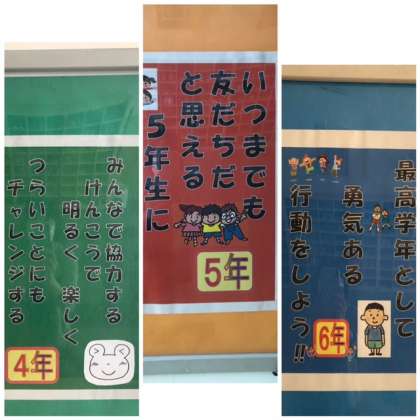 みんなで協力する
けんこうで
明るく 楽しく
つらいことにも
チャレンジする
4年
いつまでも
友だちだ
と思える
5年生に
5年
最高学年として
勇気ある
行動をしよう!!
6年